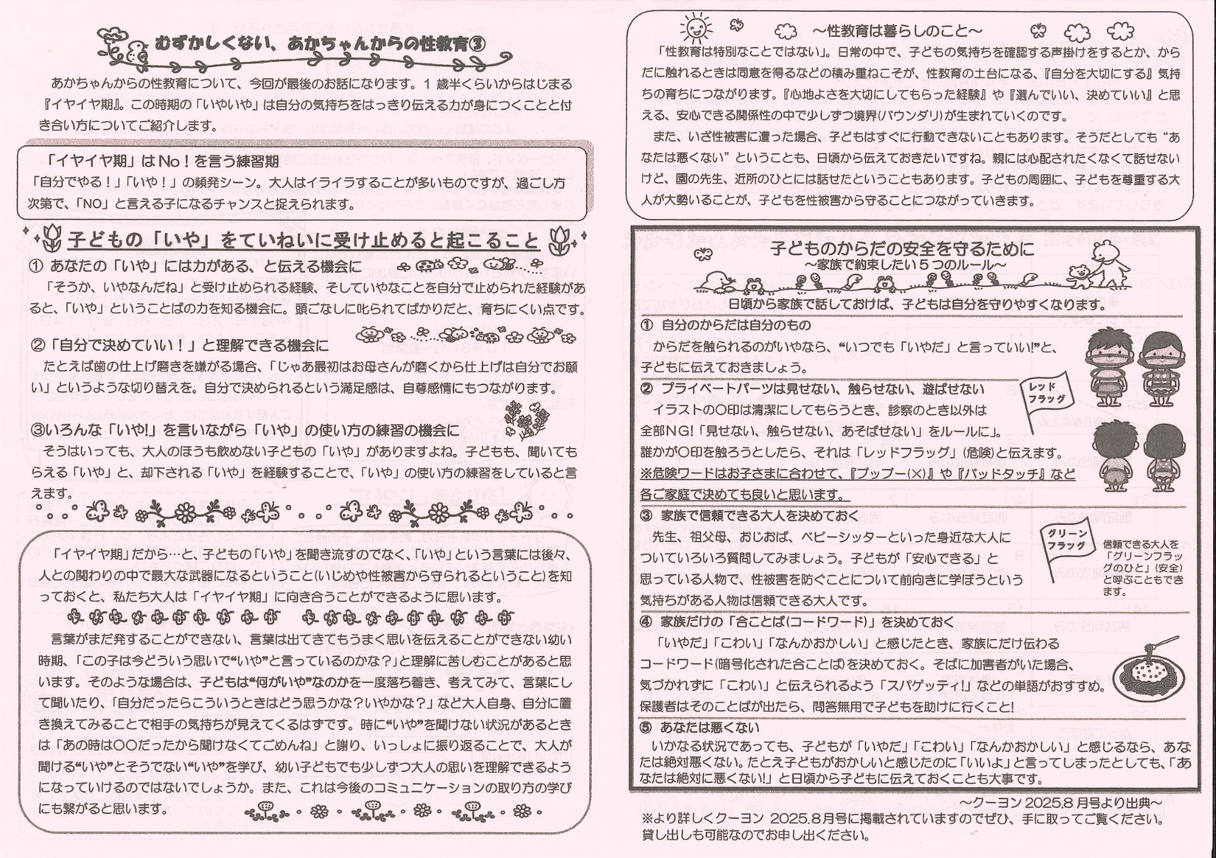 むずかしくない、あかちゃんからの性教育③
あかちゃんからの性教育について、今回が最後のお話になります。1歳半くらいからはじまる
『イヤイヤ期』。この時期の「いやいや」は自分の気持ちをはっきり伝える力が身につくことと付
き合い方についてご紹介します。
「イヤイヤ期」はNo！を言う練習期
「自分でやる！」「いや！」の頻発シーン。大人はイライラすることが多いものですが、過ごし方
次第で、「NO」と言える子になるチャンスと捉えられます。
子どもの「いや」をていねいに受け止めると起こること
① あなたの「いや」には力がある、と伝える機会に
「そうか、いやなんだね」と受け止められる経験、そしていやなことを自分で止められた経験があ
ると、「いや」ということばの力を知る機会に。頭ごなしに叱られてばかりだと、育ちにくい点です。
②「自分で決めていい！」と理解できる機会に
たとえば歯の仕上げ磨きを嫌がる場合、「じゃあ最初はお母さんが磨くから仕上げは自分でお願
い」というような切り替えを。自分で決められるという満足感は、自尊感情にもつながります。
③いろんな「いや!」を言いながら「いや」の使い方の練習の機会に
そうはいっても、大人のほうも飲めない子どもの「いや」がありますよね。子どもも、聞いても
らえる「いや」と、却下される「いや」を経験することで、「いや」の使い方の練習をしていると言
えます。
「イヤイヤ期」だから…と、子どもの「いや」を聞き流すのでなく、「いや」という言葉には後々、
人との関わりの中で最大な武器になるということ(いじめや性被害から守られるということ)を知
っておくと、私たち大人は「イヤイヤ期」に向き合うことができるように思います。
言葉がまだ発することができない、言葉は出てきてもうまく思いを伝えることができない幼い
時期、「この子は今どういう思いで“いや”と言っているのかな？」と理解に苦しむことがあると思
います。そのような場合は、子どもは“何がいや”なのかを一度落ち着き、考えてみて、言葉にし
て聞いたり、「自分だったらこういうときはどう思うかな？いやかな？」など大人自身、自分に置
き換えてみることで相手の気持ちが見えてくるはずです。時に“いや”を聞けない状況があるとき
は「あの時は〇〇だったから聞けなくてごめんね」と謝り、いっしょに振り返ることで、大人が
聞ける“いや”とそうでない“いや”を学び、幼い子どもでも少しずつ大人の思いを理解できるよう
になっていけるのではないでしょうか。また、これは今後のコミュニケーションの取り方の学び
にも繋がると思います。
～性教育は暮らしのこと～
「性教育は特別なことではない」。日常の中で、子どもの気持ちを確認する声掛けをするとか、から
だに触れるときは同意を得るなどの積み重ねこそが、性教育の土台になる、『自分を大切にする』気持
ちの育ちにつながります。『心地よさを大切にしてもらった経験』や『選んでいい、決めていい』と思
える、安心できる関係性の中で少しずつ境界(バウンダリ)が生まれていくのです。
また、いざ性被害に遭った場合、子どもはすぐに行動できないこともあります。そうだとしても“あ
なたは悪くない”ということも、日頃から伝えておきたいですね。親には心配されたくなくて話せない
けど、園の先生、近所のひとには話せたということもあります。子どもの周囲に、子どもを尊重する大
人が大勢いることが、子どもを性被害から守ることにつながっていきます。
子どものからだの安全を守るために
～家族で約束したい５つのルール～
日頃から家族で話しておけば、子どもは自分を守りやすくなります。
① 自分のからだは自分のもの
からだを触られるのがいやなら、“いつでも「いやだ」と言っていい!”と、
子どもに伝えておきましょう。
② プライベートパーツは見せない、触らせない、遊ばせない
イラストの〇印は清潔にしてもらうとき、診察のとき以外は
全部NG!「見せない、触らせない、あそばせない」をルールに」。
誰かが〇印を触ろうとしたら、それは「レッドフラッグ」(危険)と伝えます。
※危険ワードはお子さまに合わせて、『ブッブー(×)』や『バッドタッチ』など
各ご家庭で決めても良いと思います。
レッド
フラッグ
③ 家族で信頼できる大人を決めておく
先生、祖父母、おじおば、ベビーシッターといった身近な大人に
ついていろいろ質問してみましょう。子どもが「安心できる」と
思っている人物で、性被害を防ぐことについて前向きに学ぼうという
気持ちがある人物は信頼できる大人です。
グリーン
フラッグ
信頼できる大人を
「グリーンフラッ
グのひと」(安全)
と呼ぶこともでき
ます。
④ 家族だけの「合ことば(コードワード)」を決めておく
「いやだ」「こわい」「なんかおかしい」と感じたとき、家族にだけ伝わる
コードワード(暗号化された合ことば)を決めておく。そばに加害者がいた場合、
気づかれずに「こわい」と伝えられるよう「スパゲッティ!」などの単語がおすすめ。
保護者はそのことばが出たら、問答無用で子どもを助けに行くこと!
⑤ あなたは悪くない
いかなる状況であっても、子どもが「いやだ」「こわい」「なんかおかしい」と感じるなら、あな
たは絶対悪くない。たとえ子どもがおかしいと感じたのに「いいよ」と言ってしまったとしても、「あ
なたは絶対に悪くない!」と日頃から子どもに伝えておくことも大事です。
～クーヨン 2025.8 月号より出典～
※より詳しくクーヨン 2025.8月号に掲載されていますのでぜひ、手に取ってご覧ください。
貸し出しも可能なのでお申し出ください。